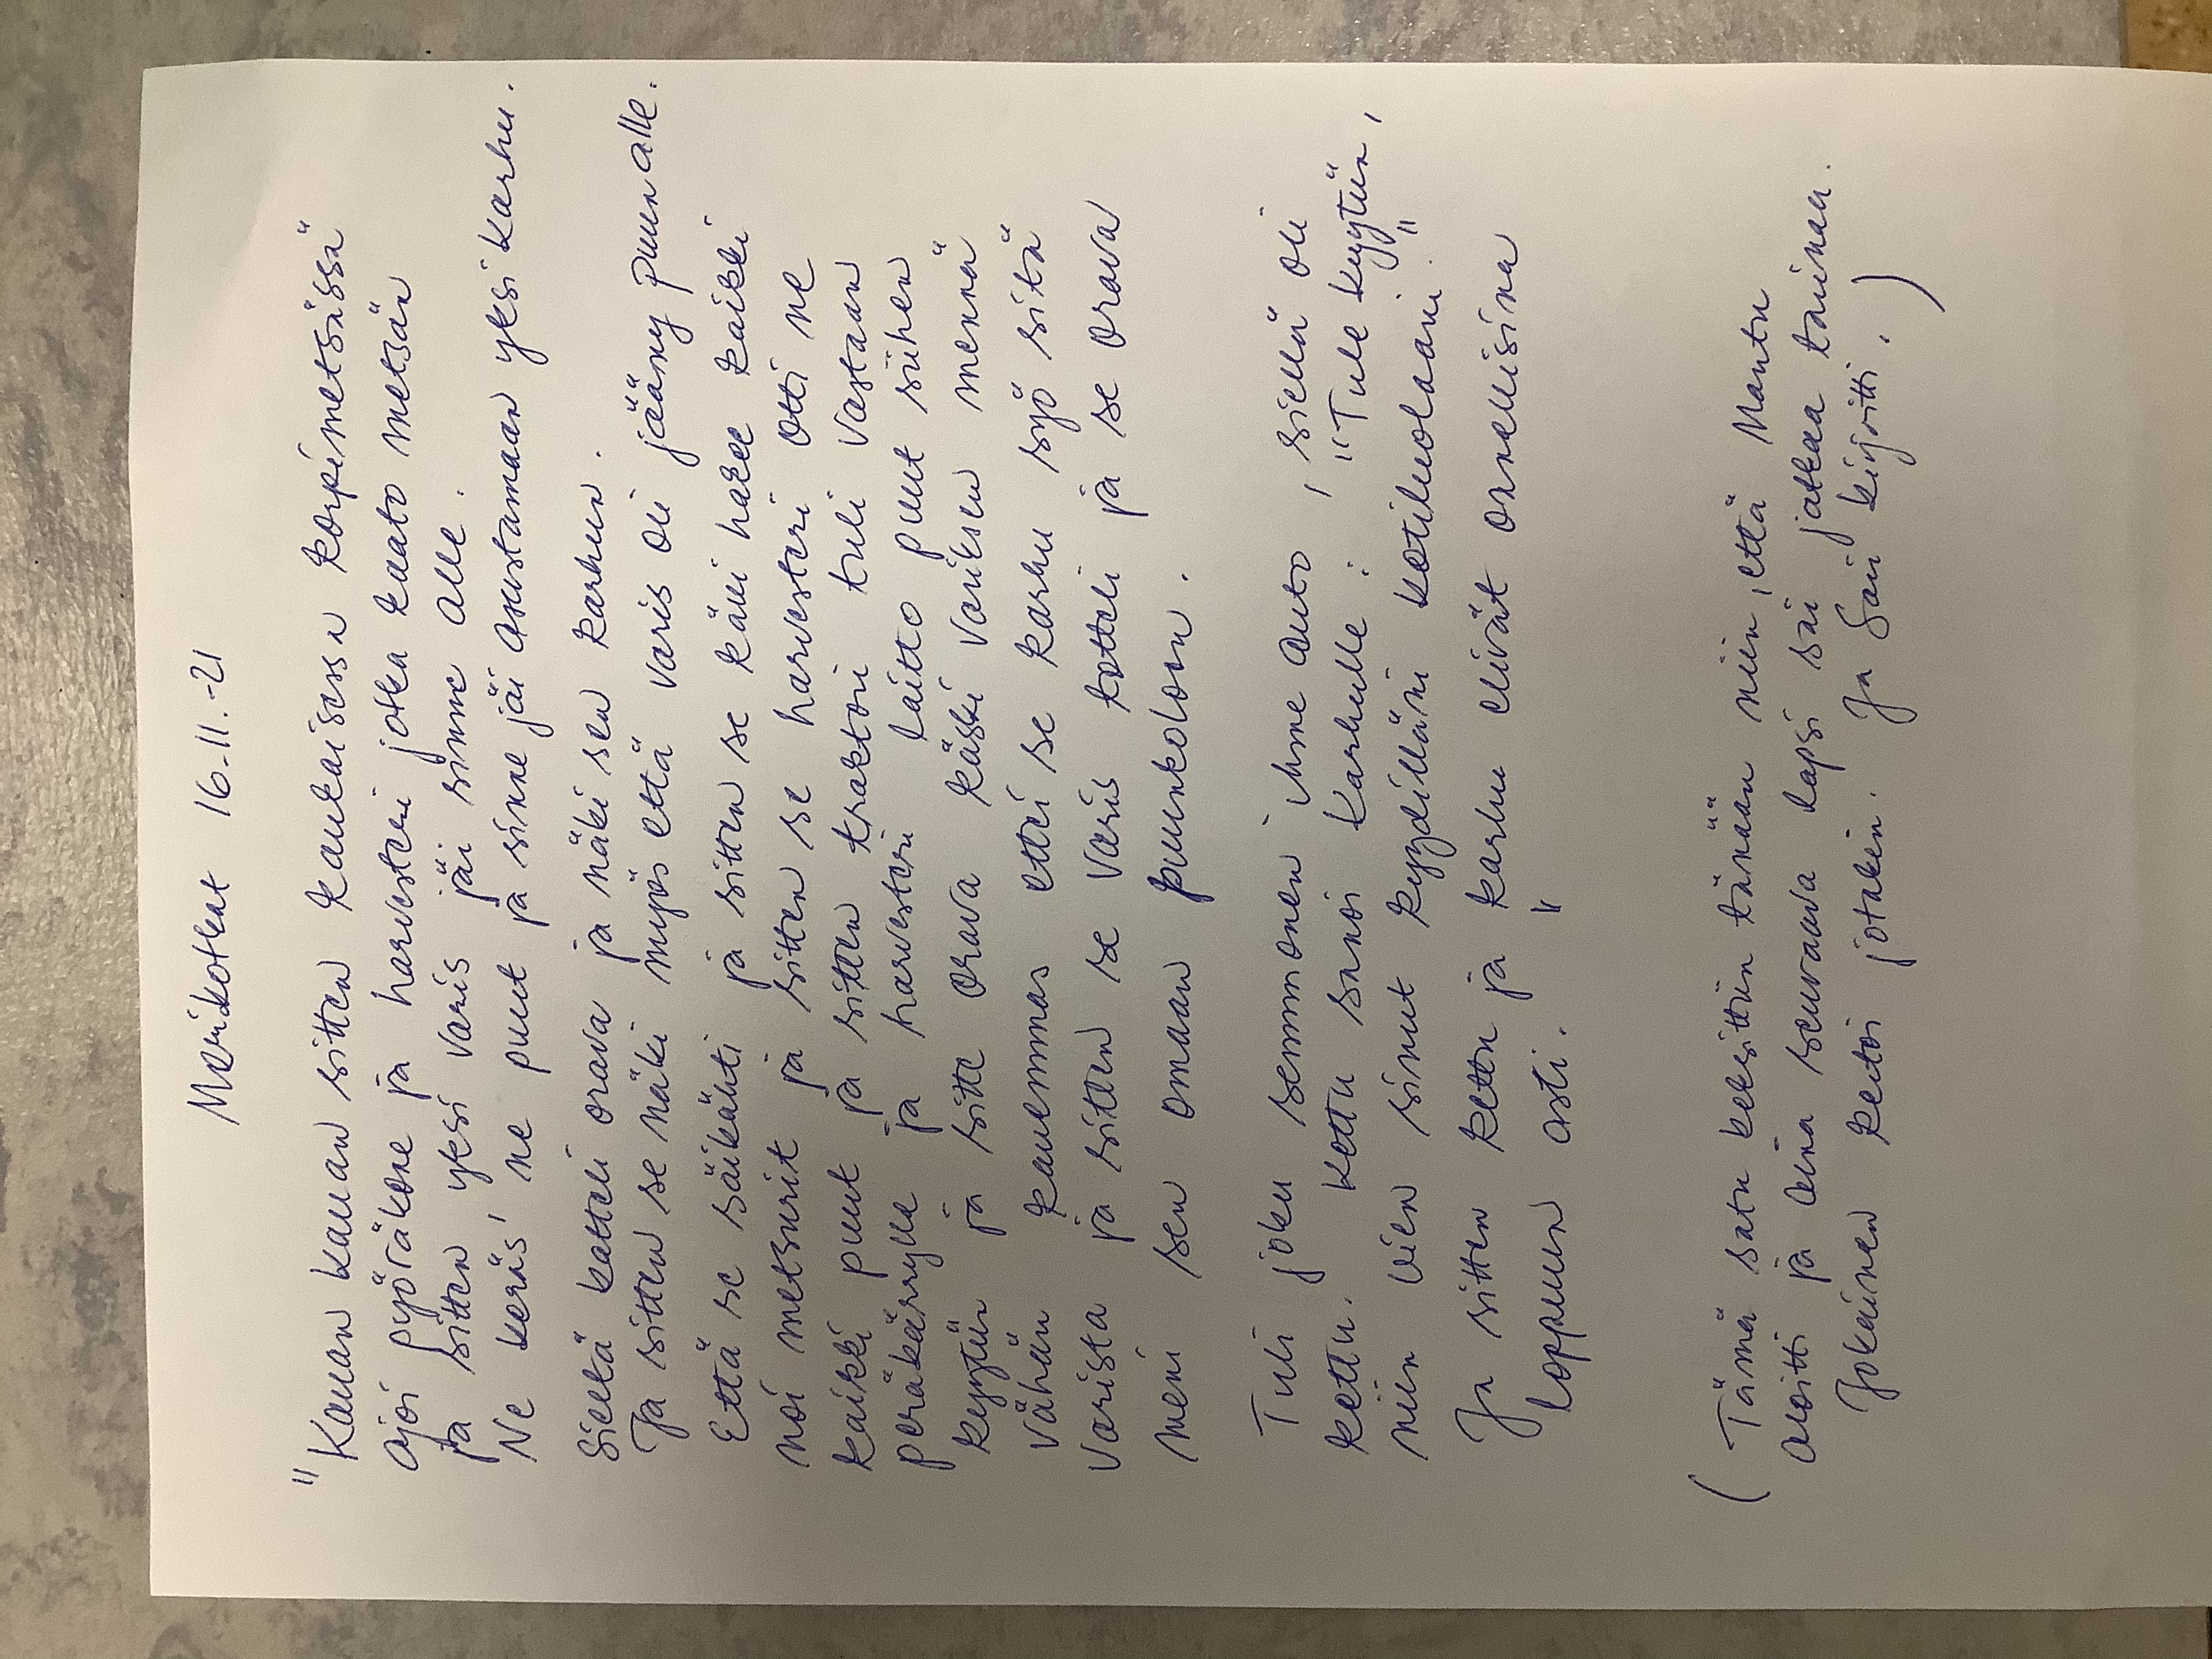 Merikotkat 16.11.-21
"Kauan kauan sitten kaukaisessa korpimetsässä
ajoi pyöräkone ja harvesteri jotka kaato metsän
ja sitten yksi varis jäi sinne alle.
Ne keräs' ne puut ja sinne jäi asustamaan yksi karhu.
Sieltä katteli orava ja näki sen karhun.
Ja sitten se näki myös että varis oli jääny puun alle.
Että se säikähti ja sitten se käki hakee kaikki
noi metsurit ja sitten se harvesteri otti ne
kaikki puut ja sitten traktori tuli vastaan
peräkärrylle ja harvesteri laitto puut siihen
kyytiin ja sitte orava käski variksen mennä
vähän kauemmas ettei se karhu syö sitä
varista ja sitten se varis totteli ja se orava
meni sen omaan puunkoloon.
Tuli joku semmonen ihme auto, siellä oli
kettu. Kettu sanoi karhulle: "Tule kyytiin,
niin vien sinut kyydilläni kotikuolaani."
Ja sitten kettu ja karhu elivät onnellisina
loppuun asti."
(Tämä satu keksittiin tänään niin, että Mantu
aloitti ja aina seuraava lapsi sai jatkaa tarinaa.
Jokainen keksi jotakin. Ja Sari kirjoitti.)